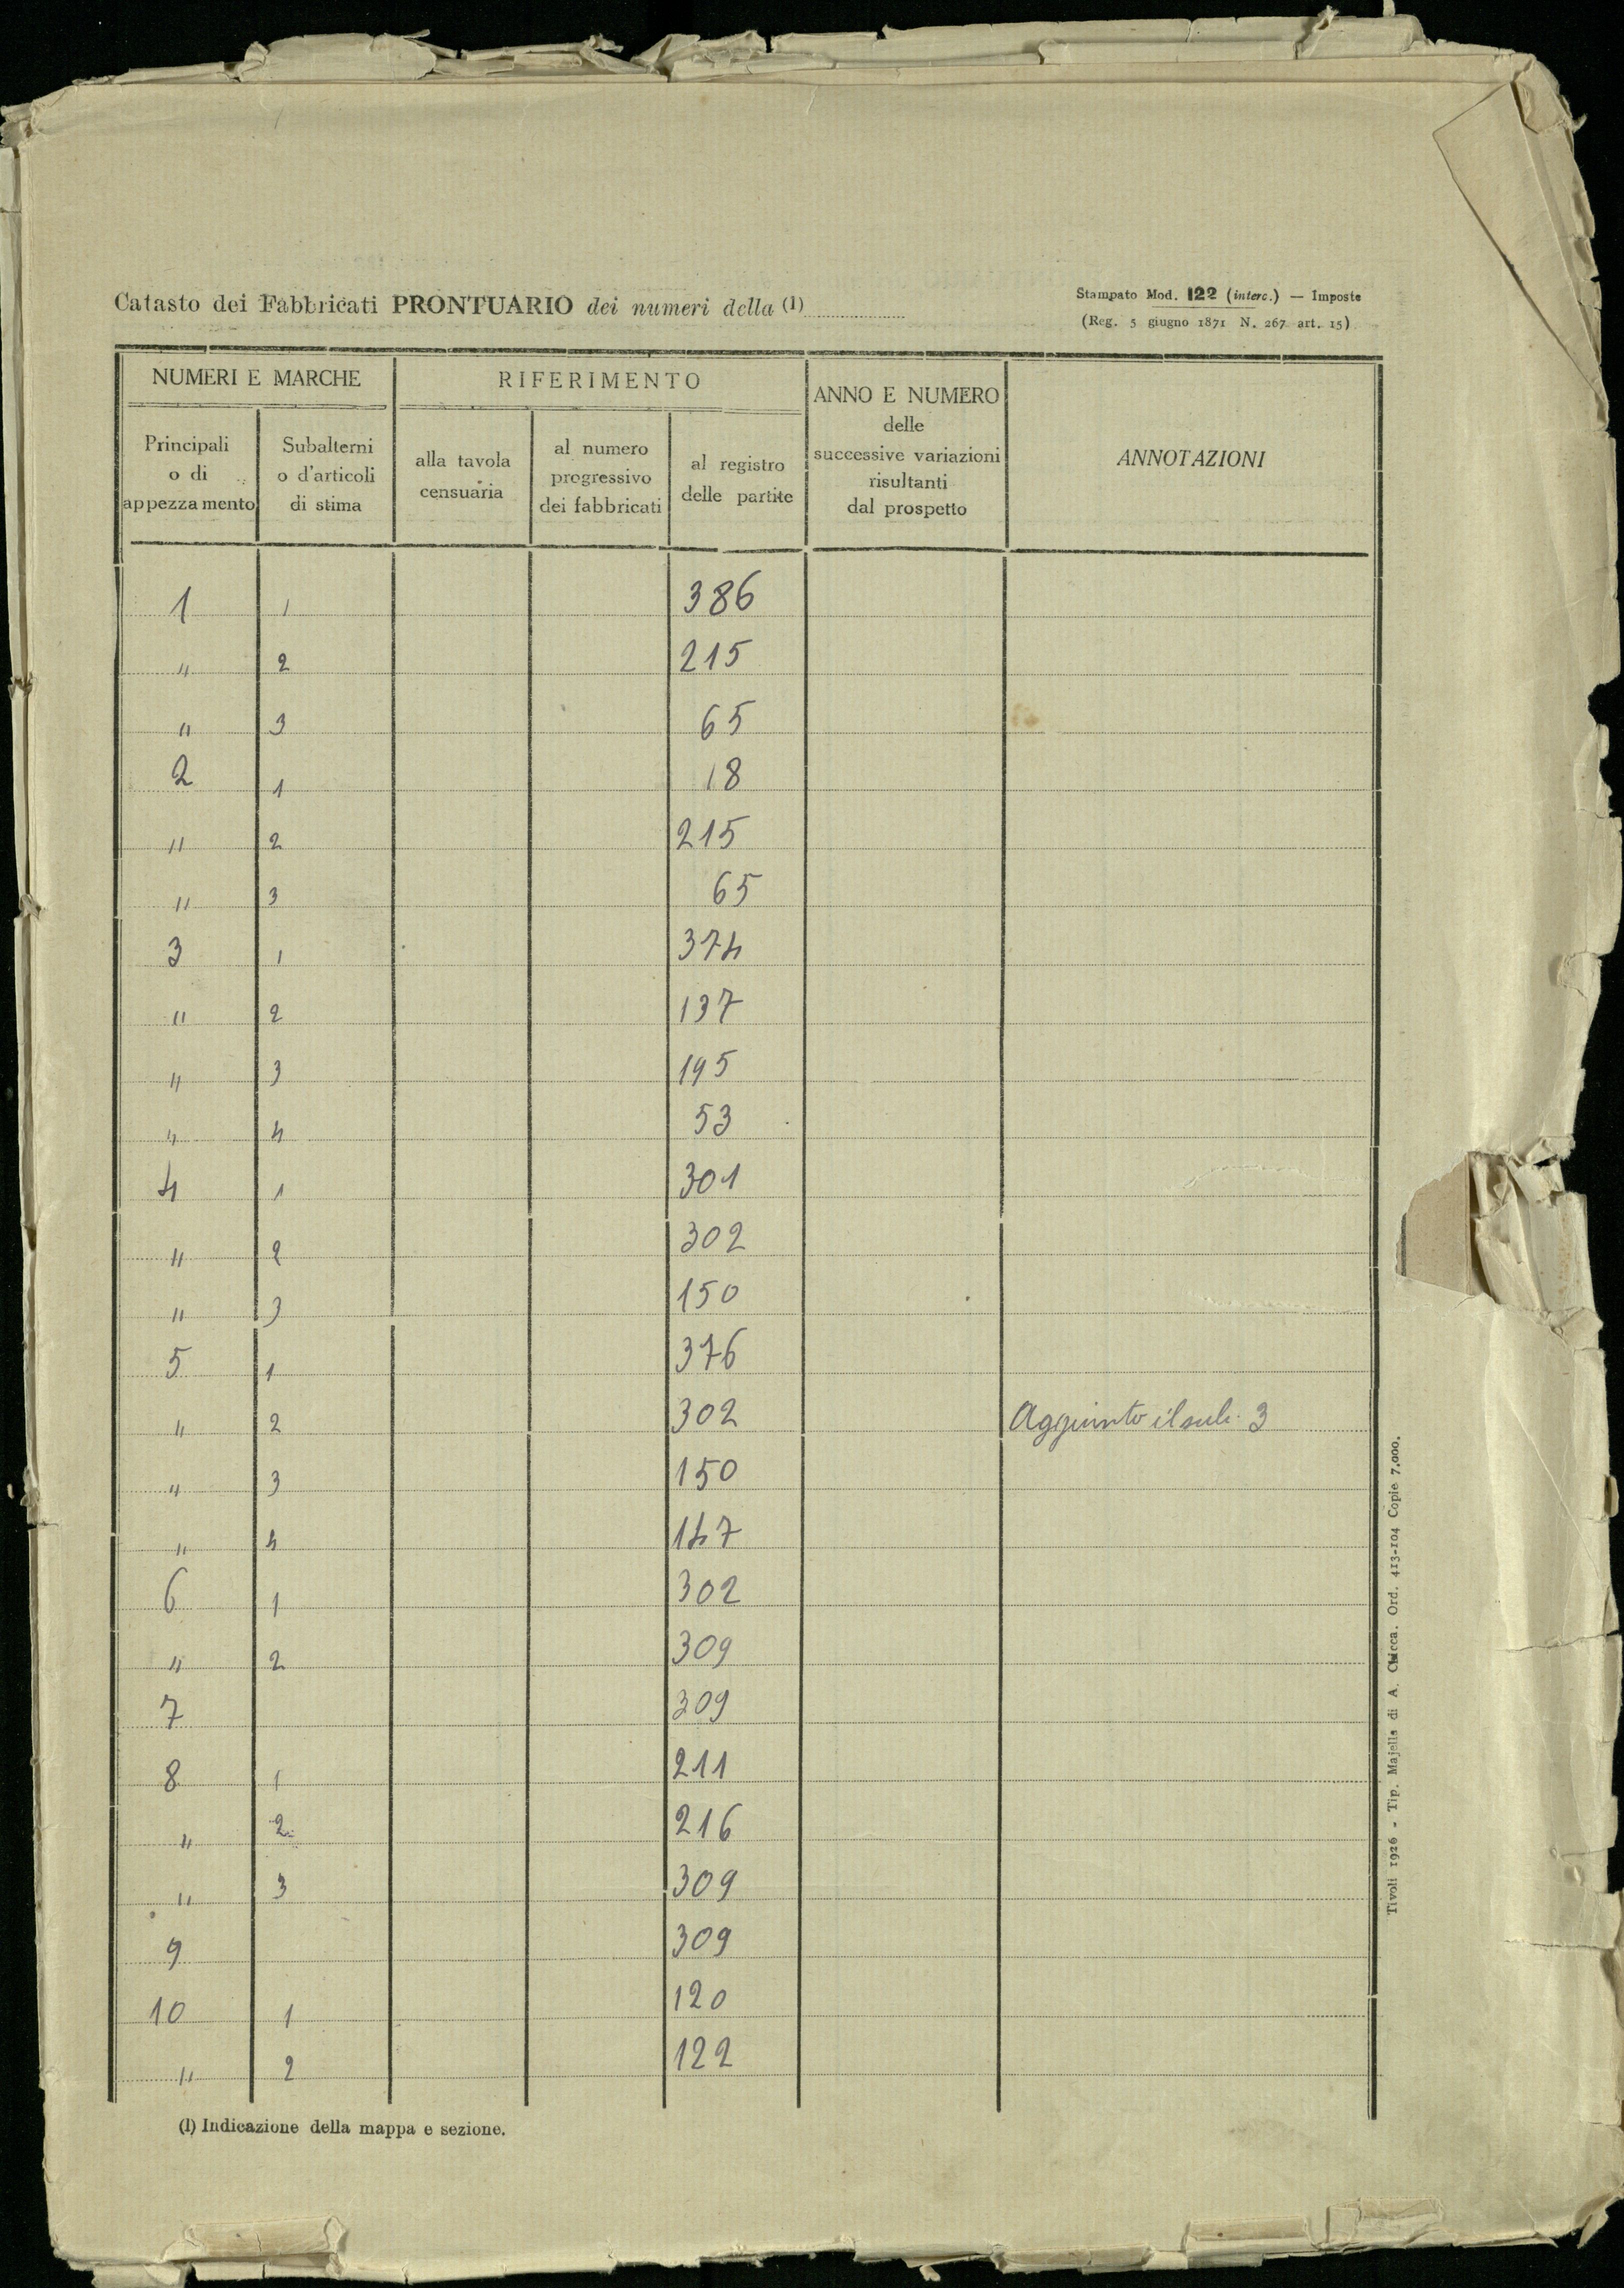 Catasto dei Fabbricati PRONTUARIO dei numeri della (1)
Stampato Mod. 122 (interc.) — Imposte
(Reg. 5 giugno 1871 N. 267 art. 15)
NUMERI E MARCHE
RIFERIMENTO
ANNO E NUMERO
delle
successive variazioni
risultanti
dal prospetto
ANNOTAZIONI
Principali
o di
appezzamento
Subalterni
o d'articoli
di stima
alla tavola
censuaria
al numero
progressivo
dei fabbricati
al registro
delle partite
1 1 386
" 2 215
" 3 65
2 1 18
" 2 215
" 3 65
3 1 374
" 2 137
" 3 195
" 4 53
4 1 301
" 2 302
" 3 150
5 1 376
" 2 302 Aggiunto il sub. 3
" 3 150
" 4 147
6 1 302
" 2 309
7 309
8 1 211
" 2 216
" 3 309
9 309
10 1 120
" 2 122
(1) Indicazione della mappa e sezione.
Tivoli 1926 - Tip. Majella di A. Chicca. Ord. 413-104 Copie 7.000.